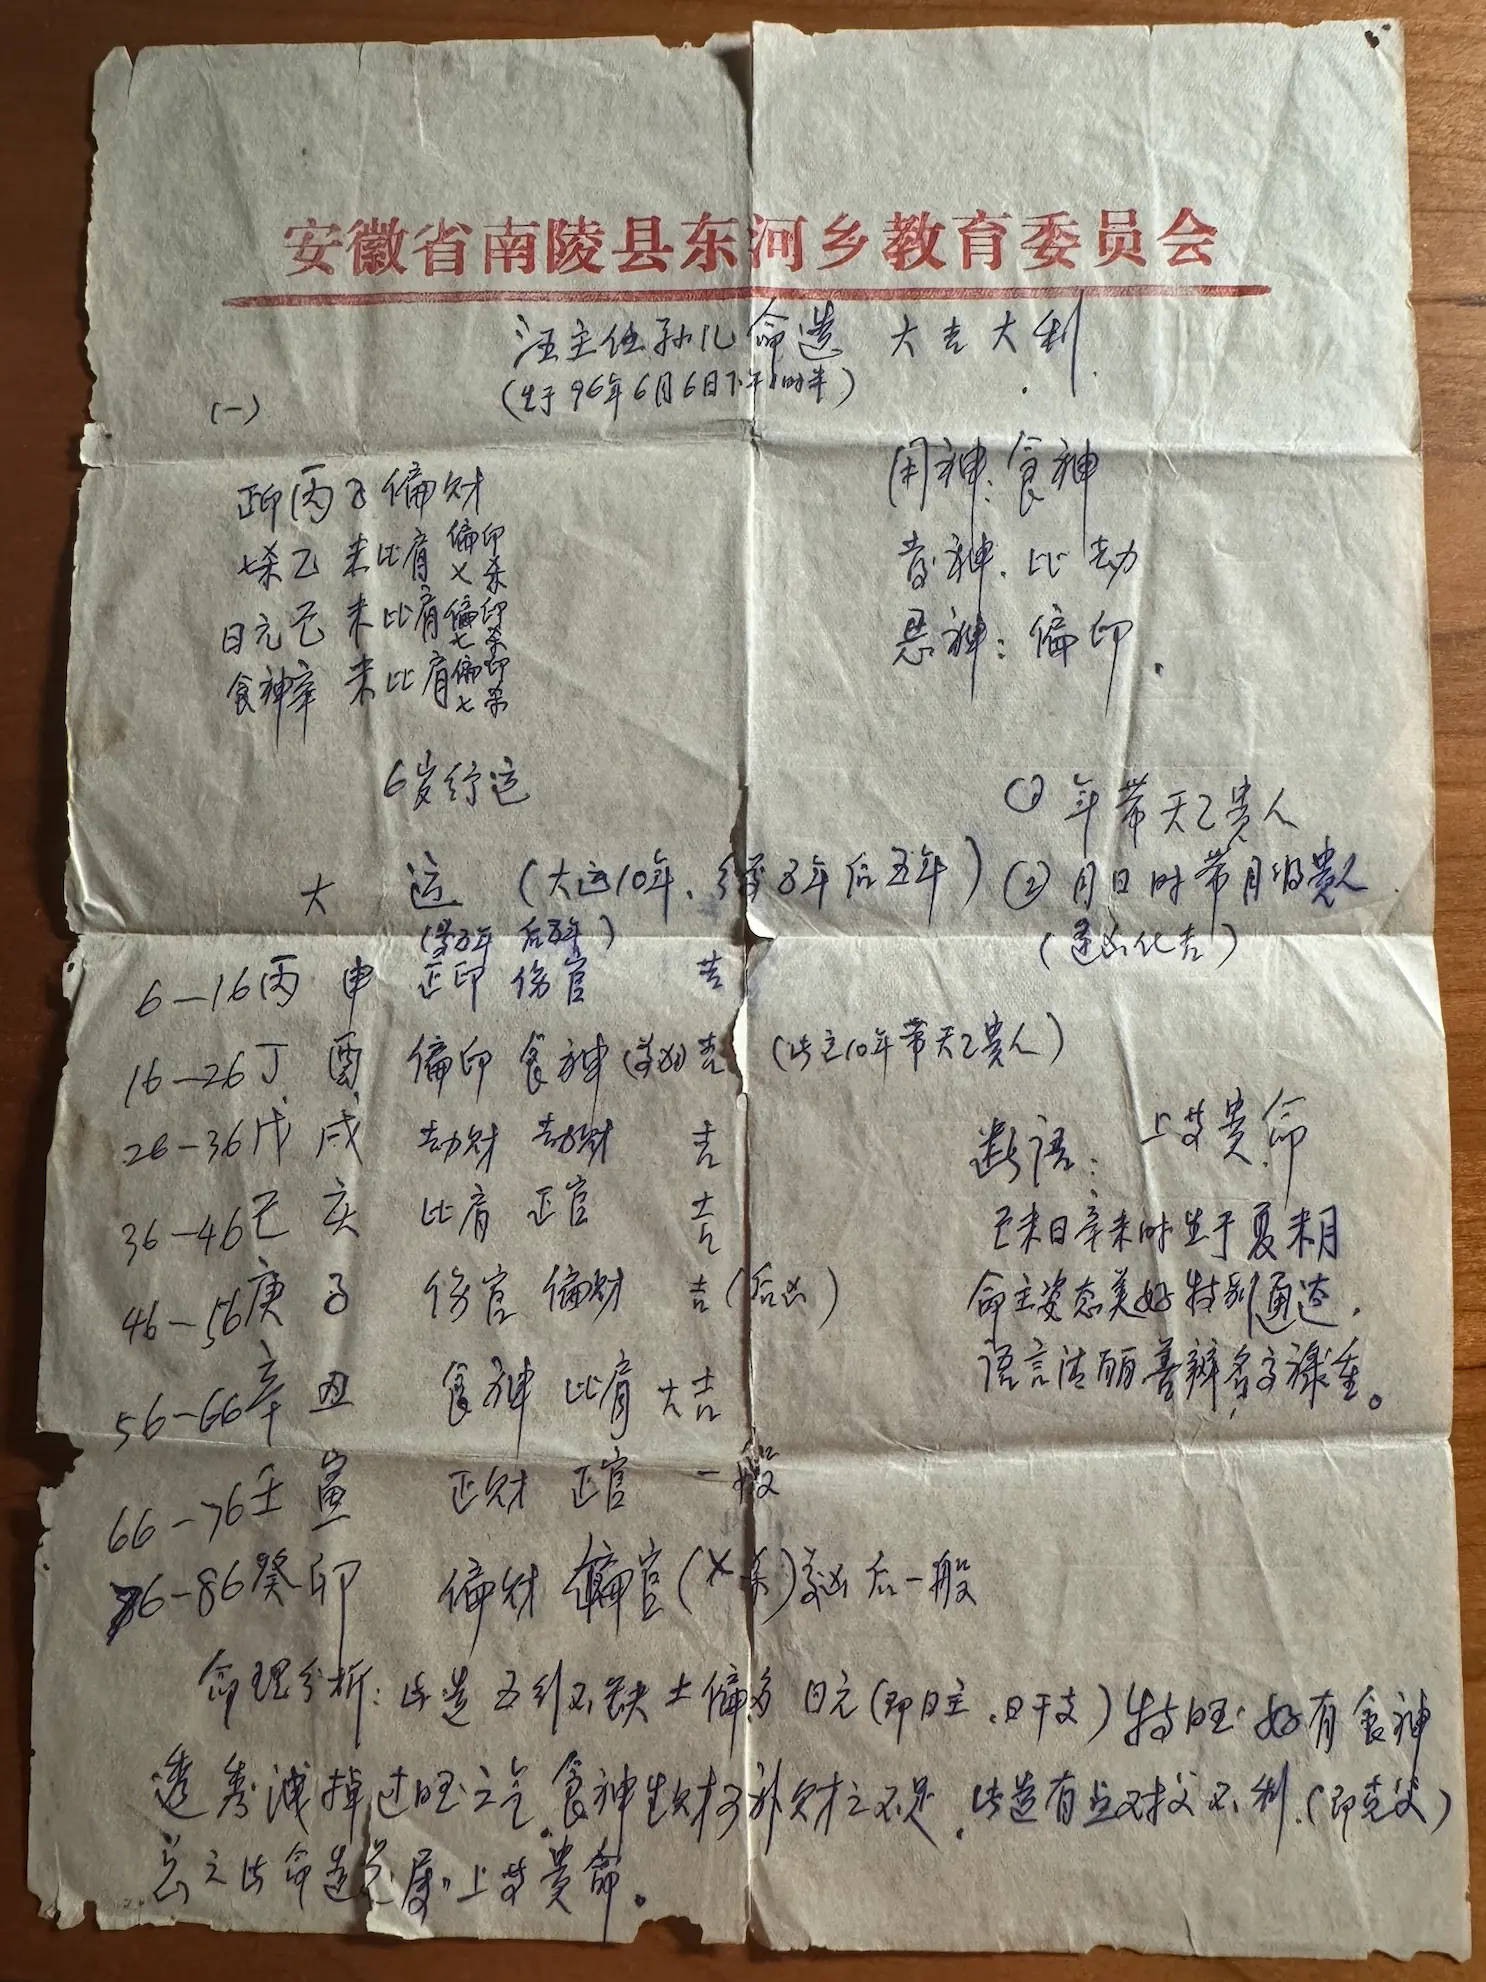 安徽省南陵县东河乡教育委员会
汪主任孙儿命造 大吉大利.
(生于96年6月6日下午1时半)
(一)
正印丙子偏财
七杀乙 未比肩偏印七杀
日元己 未比肩偏印七杀
食神辛 未比肩偏印七杀
用神:食神
喜神:比劫
忌神:偏印.
6岁行运
① 年带天乙贵人
大 运 (大运10年,管前5年后五年)
② 月日时带月德贵人.
(逢凶化吉)
(前5年 后5年)
6—16丙 申 正印 伤官 吉
16—26丁 酉 偏印 食神(前凶)吉 (此运10年带天乙贵人)
26—36戊 戌 劫财 劫财 吉
36—46己 亥 比肩 正官 吉
46—56庚 子 伤官 偏财 吉(后凶)
56—66辛 丑 食神 比肩 大吉
66—76壬 寅 正财 正官 一般
76—86癸 卯 偏财 偏官(七杀)前凶后一般
断语: 上等贵命
己未日辛未时生于夏未月
命主姿态美好特别通达,
语言清丽善辩,名高禄重。
命理分析:此造五行不缺土偏多 日元(即日主,日干支)特旺 好有食神
透秀泄掉过旺之气.食神生财可补财之不足.此造有点对父不利.(即克父)
总之此命造总属上等贵命。